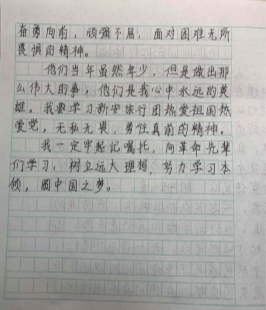 奋勇向前，顽强不屈，面对困难无所
畏惧的精神。
他们当年虽然年少，但是做出那
么伟大的事，他们是我心中永远的英
雄。我要学习新安旅行团热爱祖国热
爱党，无私无畏，勇往直前的精神。
我一定牢记嘱托，向革命先辈
们学习，树立远大理想，努力学习本
领，圆中国之梦。